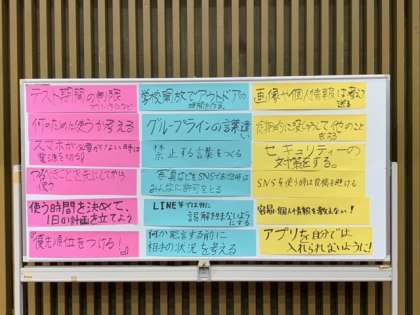 テスト期間の制限
何のために使うか考える
スマホが必要がない時は
電源を切る
つかうことを先にしてから
使う
使う時間を決めて、
1日の計画を立てよう
優先順位をつける!
学校開放でアウトドアの
グループラインの言葉遣い
禁止する言葉をつくる
写真などをSNSでのせる時は
みんなに許可をとる
LINE等では特に
誤解がうまれないように
する
何か発言する前に
相手の状況を考える
画像や個人情報は考えて
送る
他のこと
セキュリティーの
対策をする。
SNSを使う時は投稿を避ける
容易に個人情報を教えない!
アプリを自分では
入れられないように!